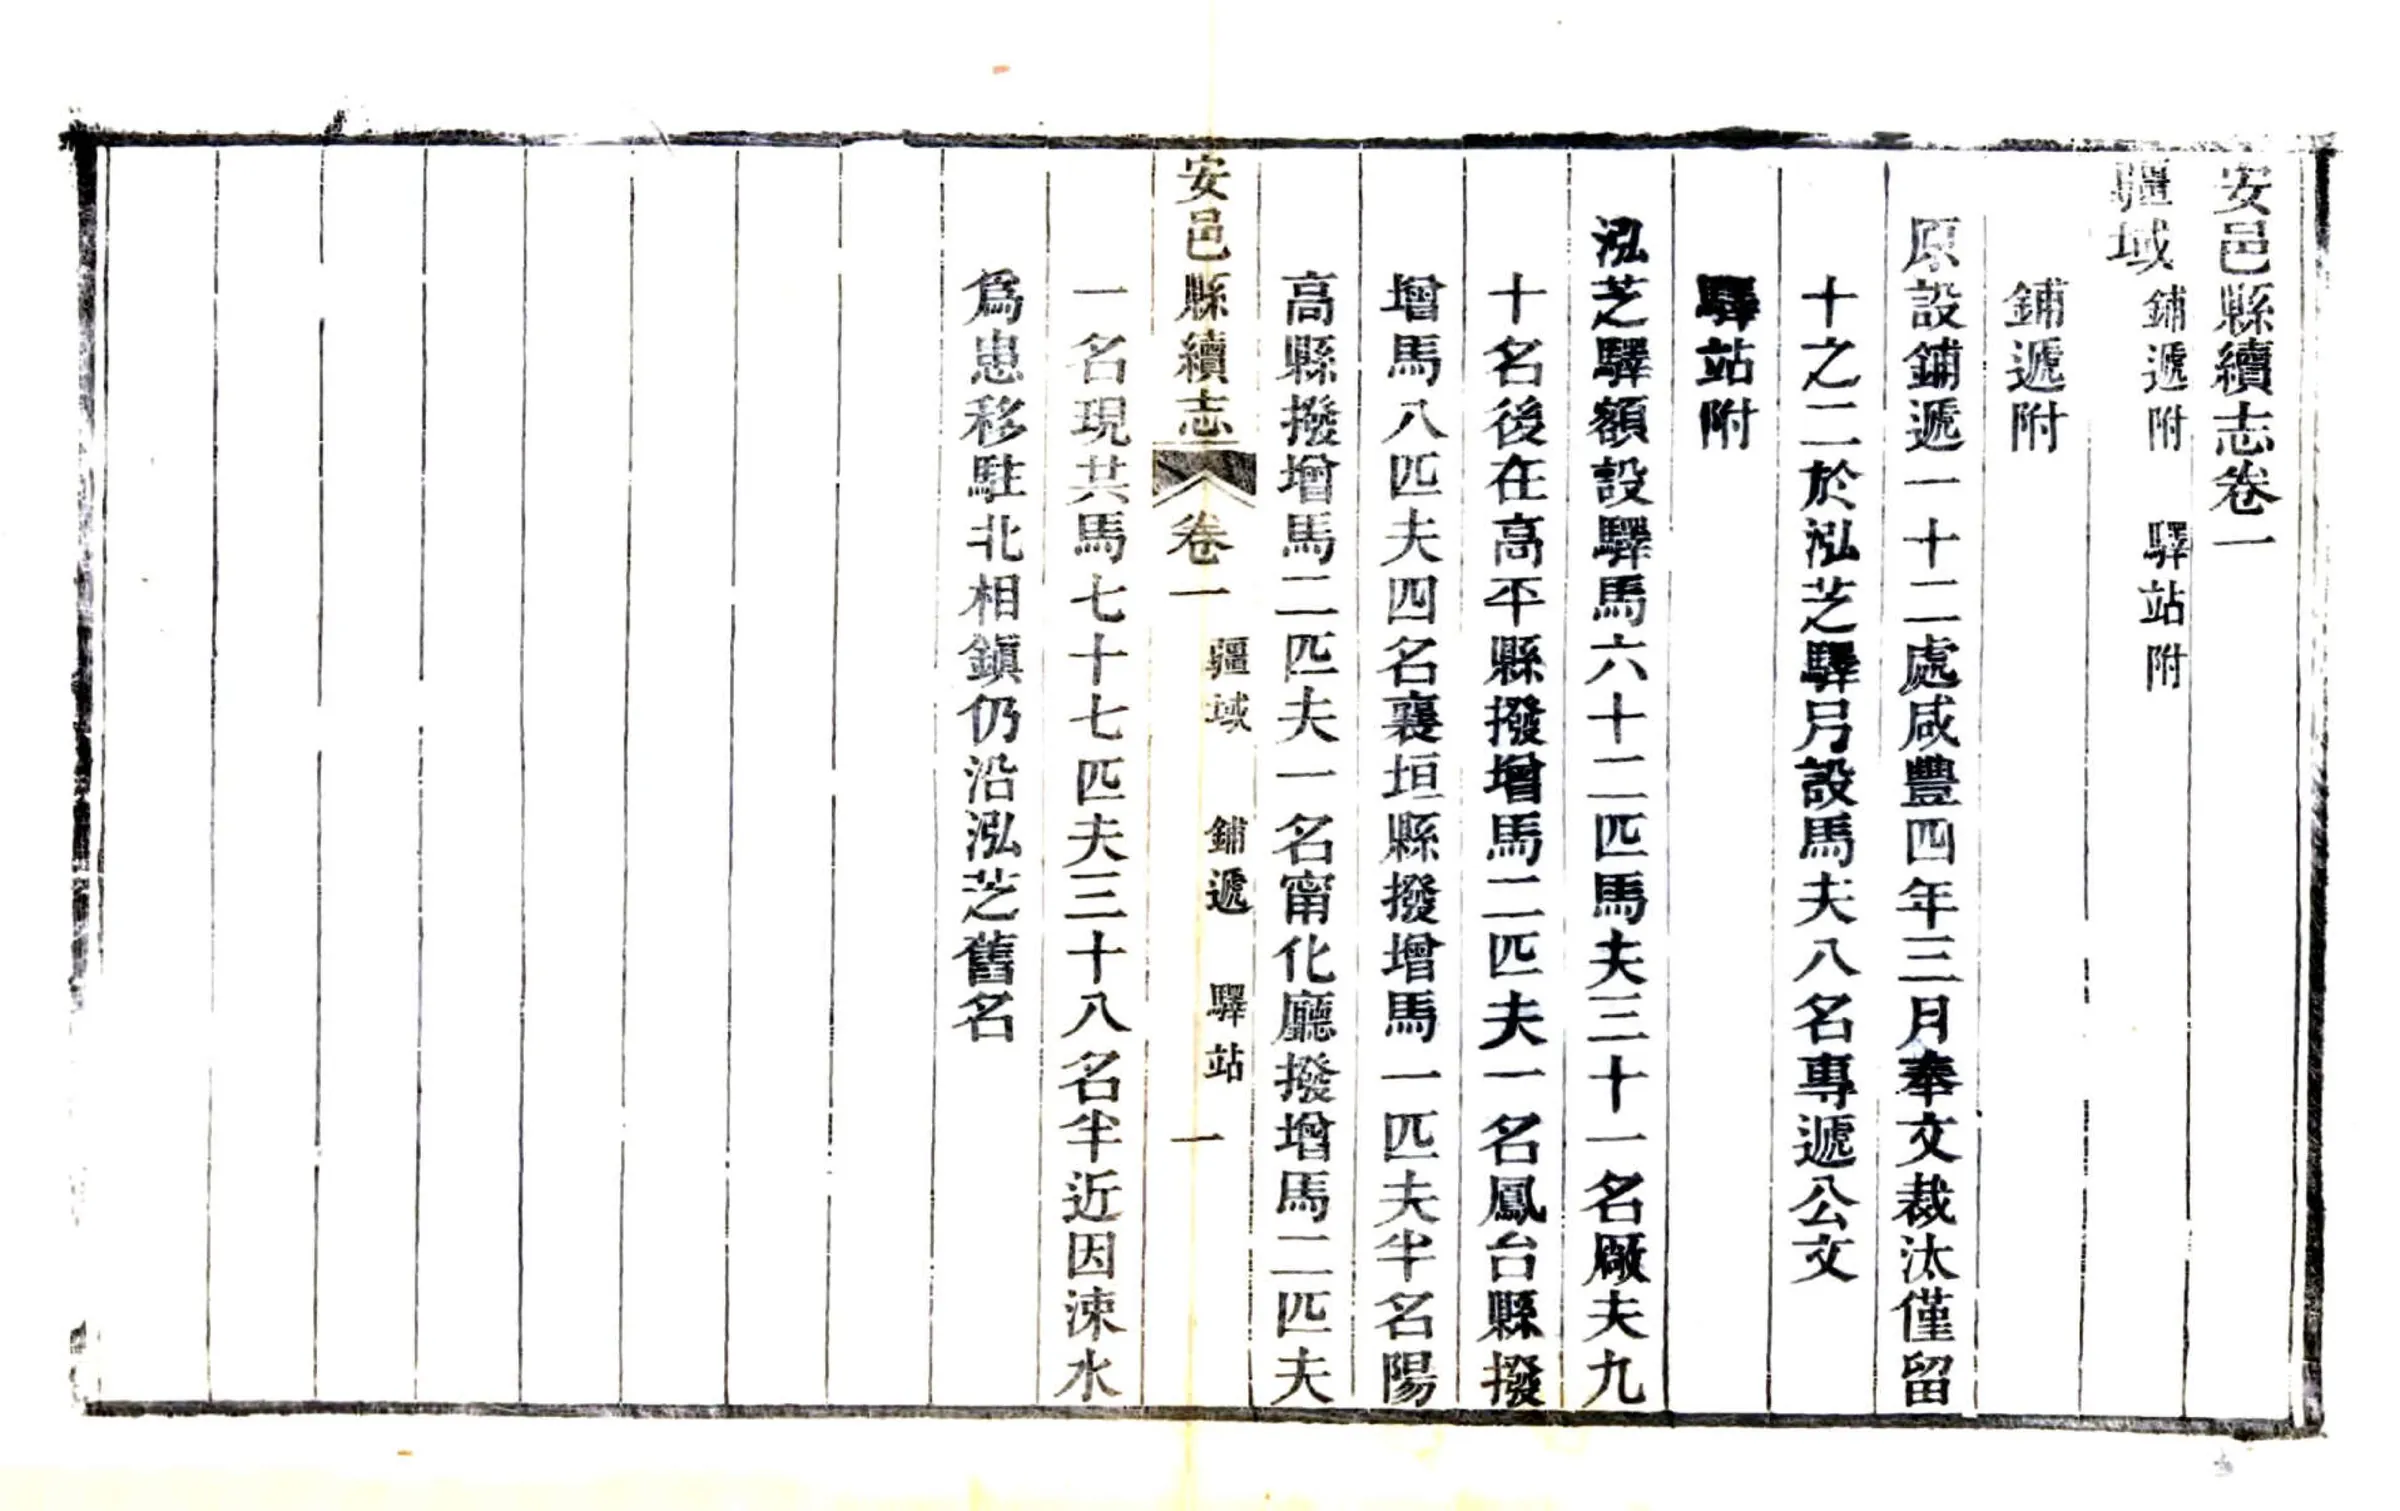 安邑縣續志卷一
疆域 鋪遞附 驛站附
鋪遞附
原設鋪遞一十二處咸豐四年三月奉文裁汰僅留
十之二於泓芝驛另設馬夫八名專遞公文
驛站附
泓芝驛額設驛馬六十二匹馬夫三十一名廠夫九
十名後在高平縣撥增馬二匹夫一名鳳台縣撥
增馬八匹夫四名襄垣縣撥增馬一匹夫半名陽
高縣撥增馬二匹夫一名甯化廳撥增馬二匹夫
安邑縣續志 卷一 疆域 鋪遞 驛站 一
一名現共馬七十七匹夫三十八名半近因涑水
為患移駐北相鎮仍沿泓芝舊名